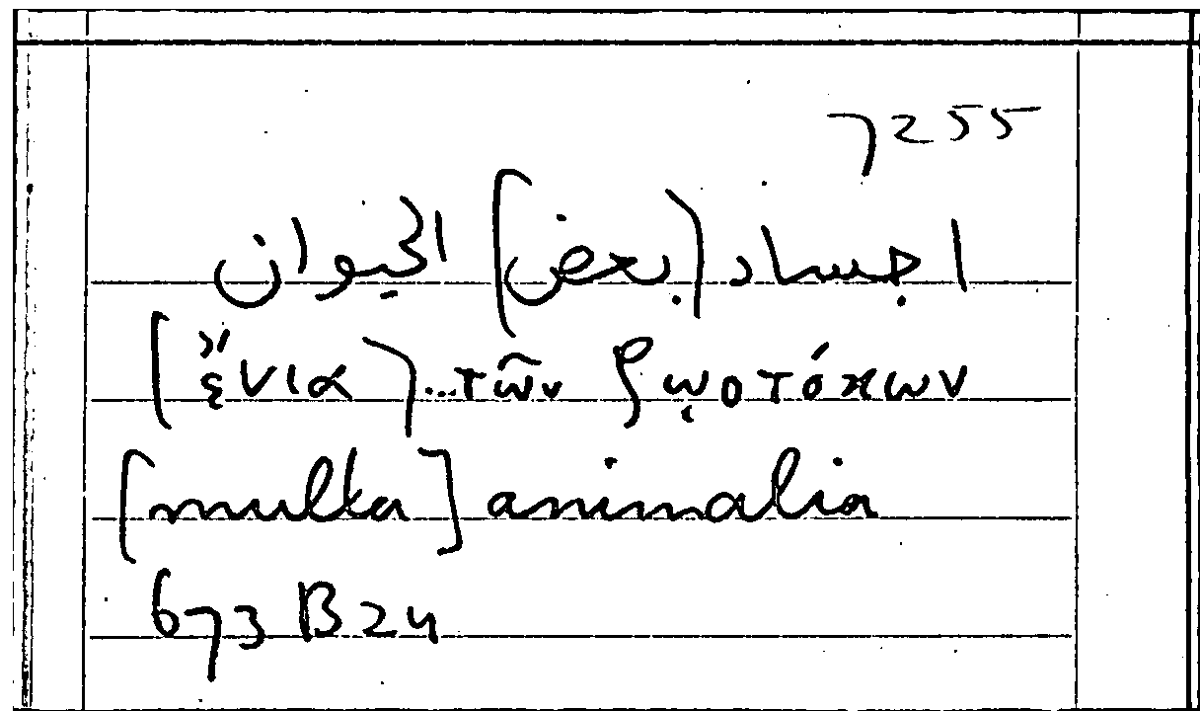 7255
اجساد [بعض] الحيوان
[ἔνια]...τῶν ζῳοτόκων
[multa] animalia
673 B 24